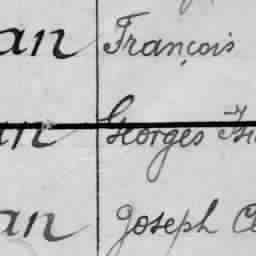 an François
an Georges
an Joseph